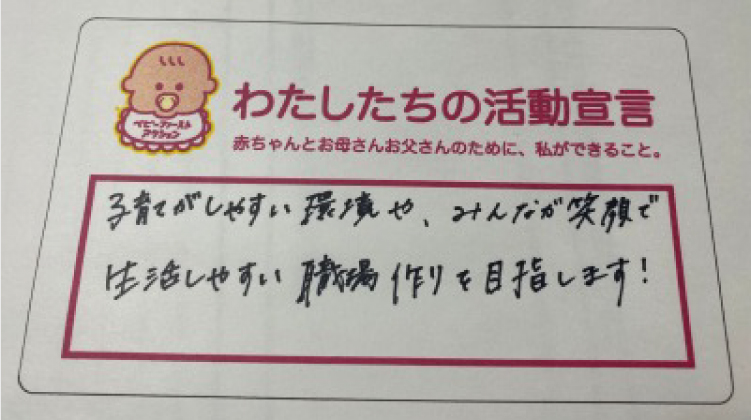 ベビーファースト
アクション
わたしたちの活動宣言
赤ちゃんとお母さんお父さんのために、私ができること。
子育てがしやすい環境や、みんなが笑顔で
生活しやすい職場作りを目指します!